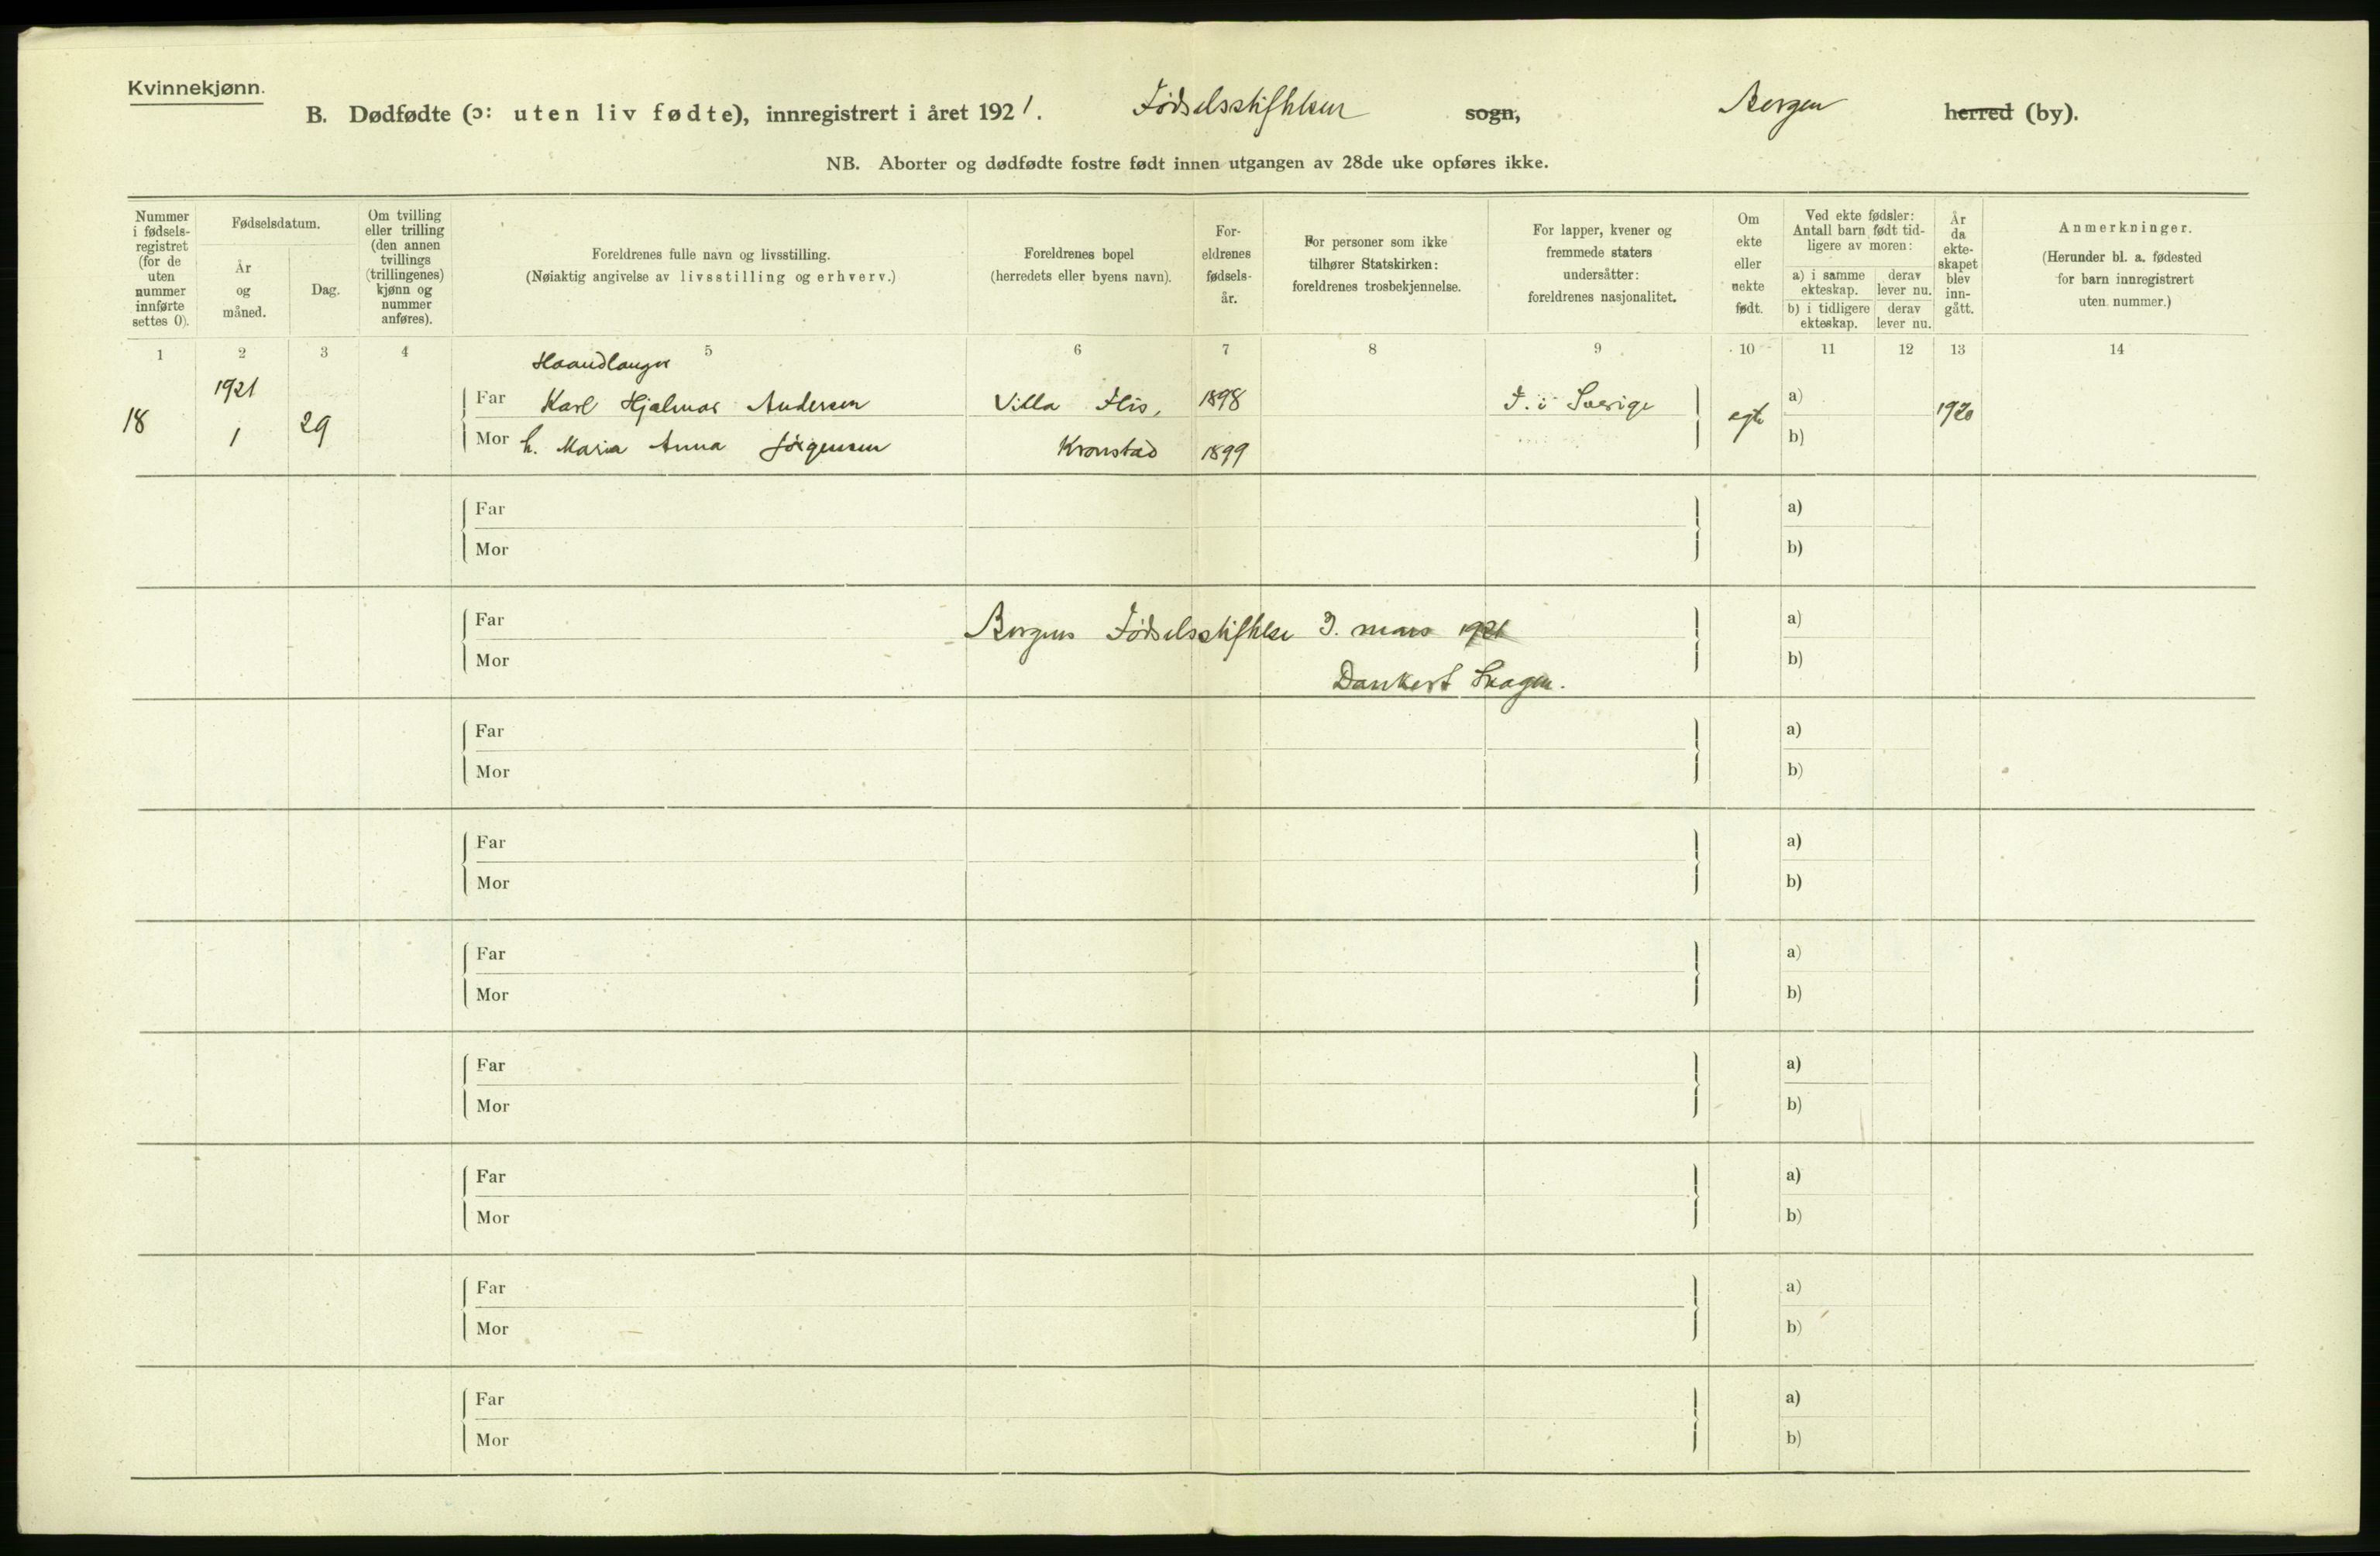 Kvinnekjønn.
B. Dødfødte (ɔ: uten liv fødte), innregistrert i året 1921. Fødselsstiftelsen sogn, Bergen herred (by).
NB. Aborter og dødfødte fostre født innen utgangen av 28de uke opføres ikke.
Nummer i fødsels-registret (for de uten nummer innførte settes 0).
Fødselsdatum.
År og måned.
Dag.
Om tvilling eller trilling (den annen tvillings (trillingenes) kjønn og nummer anføres).
Foreldrenes fulle navn og livsstilling.
(Nøiaktig angivelse av livsstilling og erhverv.)
Foreldrenes bopel
(herredets eller byens navn).
For-eldrenes fødsels-år.
For personer som ikke tilhører Statskirken: foreldrenes trosbekjennelse.
For lapper, kvener og fremmede staters undersåtter: foreldrenes nasjonalitet.
Om ekte eller uekte født.
Ved ekte fødsler: Antall barn født tid-ligere av moren:
a) i samme ekteskap. derav lever nu.
b) i tidligere ekteskap. derav lever nu.
År da ekte-skapet blev inn-gått.
Anmerkninger.
(Herunder bl. a. fødested for barn innregistrert uten nummer.)
1 2 3 4 5 6 7 8 9 10 11 12 13 14
Haandlanger
18 1921 1 29
Far Karl Hjalmar Andersen Villa Flis, 1898 F. i Sverige egte a) 1920
Mor h. Maria Anna Jörgensen Kronstad 1899 b)
Far a)
Mor b)
Far Bergens Fødselsstiftelse 3. mars 1921 a)
Mor Dankert Skagen. b)
Far a)
Mor b)
Far a)
Mor b)
Far a)
Mor b)
Far a)
Mor b)
Far a)
Mor b)
Far a)
Mor b)
Far a)
Mor b)